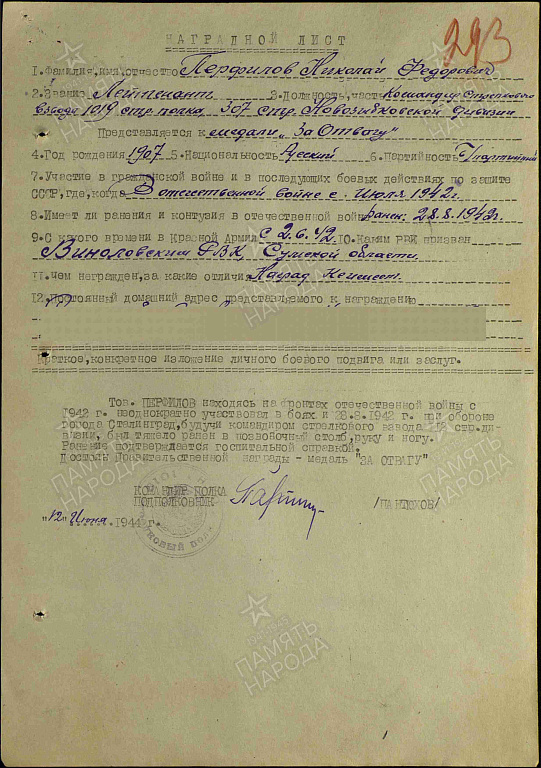 293
НАГРАДНОЙ ЛИСТ
1.Фамилия,имя,отчество Перфилов Николай Федорович
2.Звание Лейтенант 3.Должность,часть Командир Стрелкового
взвода 1019 стр.полка, 307 стр. Новозыбковской дивизии
Представляется к медали „За Отвагу"
4.Год рождения 1907 5.Национальность Русский 6.Партийность
7.Участие в гражданской войне и в последующих боевых действиях по защите
СССР,где,когда В отечественной войне с Июля 1942г.
8.Имеет ли ранения и контузия в отечественной войне ранен 28.8.1942г.
9.С какого времени в Красной Армии С 2.6.42 10.Каким РВК призван
РВК, Сумской области.
11.Чем награжден,за какие отличия Наград Неимеет.
12.Постоянный домашний адрес представляемого к награждению
Краткое,конкретное изложение личного боевого подвига или заслуг.
Тов. ПЕРФИЛОВ находясь на фронтах отечественной войны с
1942 г. неоднократно участвовал в боях и 28.8.1942 г. при обороне
города Сталинград,будучи командиром стрелкового взвода стр.ди-
визии, был тяжело ранен в позвоночный столб,руку и ногу.
Ранение подтверждается госпитальной справкой.
Достоин Правительственной награды - медаль "ЗА ОТВАГУ"
КОМАНДИР ПОЛКА
ПОДПОЛКОВНИК /ПАНТЮХОВ/
"12" Июня 1944 г.
ПАМЯТЬ НАРОДА